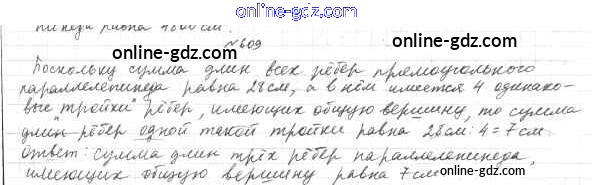 online-gdz.com
равна 4800 см.
№609
online-gdz.com online-gdz.com
Поскольку сумма длин всех рёбер прямоугольного
параллелепипеда равна 28 см, а в нём имеется 4 одинако-
вые "тройки" рёбер, имеющих общую вершину, то сумма
длин рёбер одной такой тройки равна 28 см : 4 = 7 см
Ответ: сумма длин трёх рёбер параллелепипеда,
имеющих общую вершину равна 7 см
online-gdz.com online-gdz.com